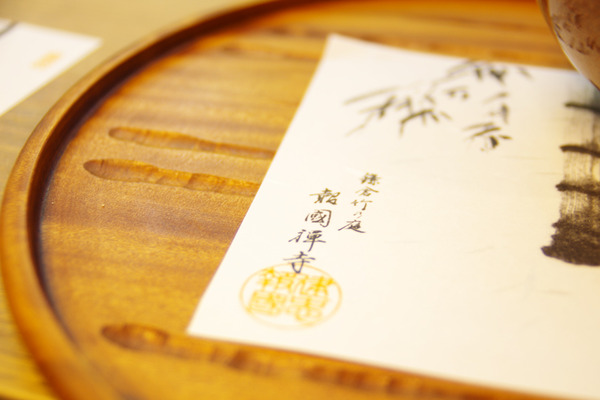 鎌倉竹の庭
報國禅寺